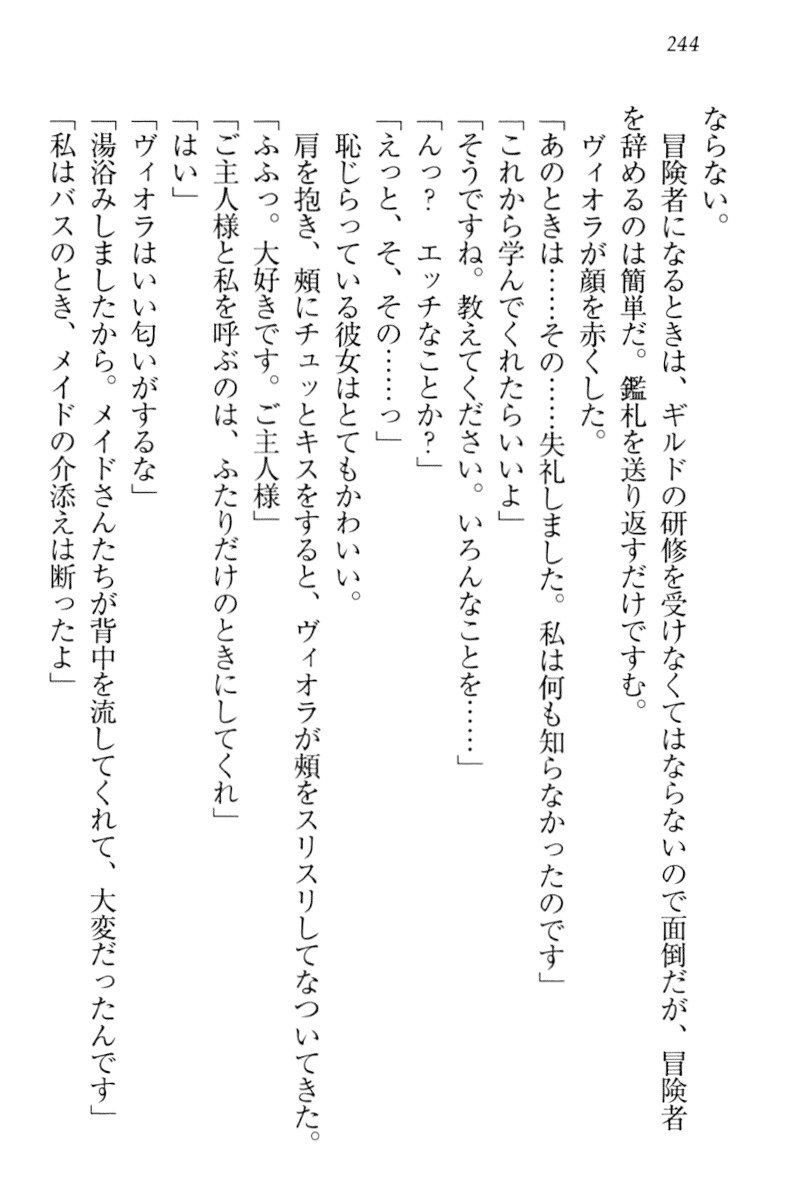 244
ならない。
　冒険者になるときは、ギルドの研修を受けなくてはならないので面倒だが、冒険者
を辞めるのは簡単だ。鑑札を送り返すだけですむ。
　ヴィオラが顔を赤くした。
「あのときは……その……失礼しました。私は何も知らなかったのです」
「これから学んでくれたらいいよ」
「そうですね。教えてください。いろんなことを……」
「んっ？　エッチなことか？」
「えっと、そ、その……っ」
　恥じらっている彼女はとてもかわいい。
　肩を抱き、頰にチュッとキスをすると、ヴィオラが頰をスリスリしてなついてきた。
「ふふっ。大好きです。ご主人様」
「ご主人様と私を呼ぶのは、ふたりだけのときにしてくれ」
「はい」
「ヴィオラはいい匂いがするな」
「湯浴みしましたから。メイドさんたちが背中を流してくれて、大変だったんです」
「私はバスのとき、メイドの介添えは断ったよ」